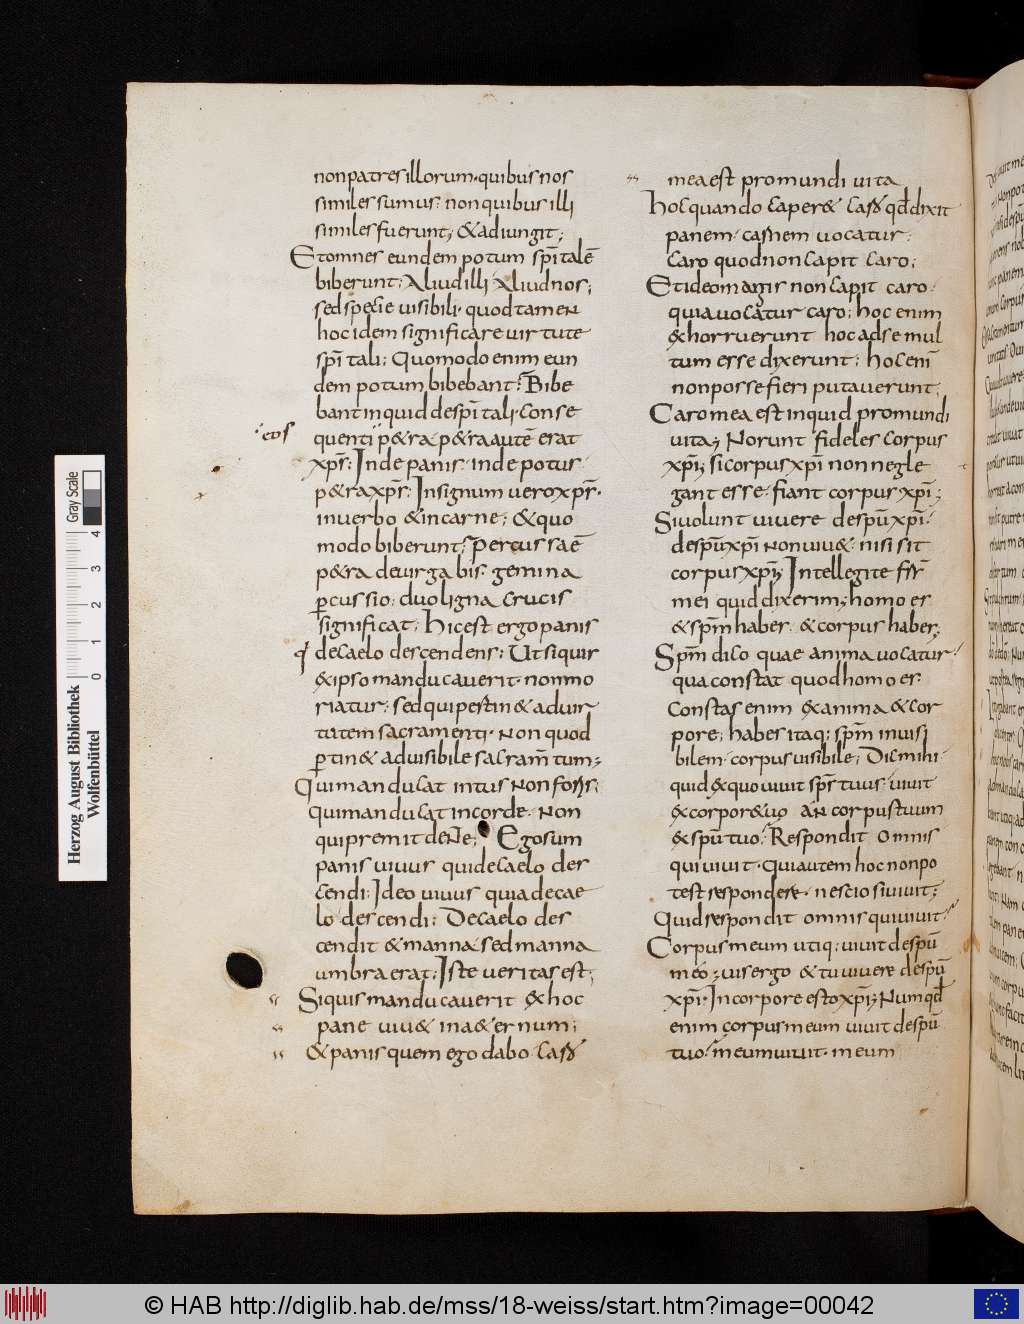 non patres illorum· quibus nos
similes sumus· non quibus illi
similes fuerunt; & adiungit;
Et omnes eundem potum spītalē
biberunt; Aliud illi Aliud nos;
sed specie uisibili· quod tamen
hoc idem significaret uirtute
spītali; Quomodo enim eun
dem potum bibebant; Bibe
bant inquid de spītali· Conse
eos
quenti p&ra p&ra autē erat
xp̄s; Inde panis· inde potus·
p&ra xp̄s; In signum uero xp̄s·
in uerbo & in carne; & quo
modo biberunt; Percussa ē
p&ra de uirga bis· gemina
ꝑcussio· duo ligna crucis
significat; Hic est ergo panis
de caelo descendens; Ut siquis
ex ipso manducauerit· non mo
riatur; sed qui pertin& ad uir
tutem sacramenti· Non quod
ꝑtin& ad uisibile sacram̄tum;
Qui manducat intus Non foris;
Qui manducat in corde· Non
qui premit dente; Ego sum
panis uiuus qui de caelo des
cendi; Ideo uiuus quia de cae
lo descendi; De caelo des
cendit & manna sed manna
umbra erat; Iste ueritas est;
Siquis manducauerit ex hoc
pane uiu& in a&ernum;
& panis quem ego dabo Caro
mea est pro mundi uita
Hoc quando caper& Caro qd̄ dixit
panem· carnem uocatur;
Caro quod non capit Caro;
Et ideo magis non capit caro·
quia uocatur caro; hoc enim
exhorruerunt hoc ad se mul
tum esse dixerunt; hoc enī
non posse fieri putauerunt;
Caro mea est inquid pro mundi
uita; Norunt fideles Corpus
xp̄i; si corpus xp̄i non negle
gant esse· fiant corpus xp̄i;
Si uolunt uiuere de spū xp̄i·
de spū xp̄i Non uiu&· nisi sit
corpus xp̄i; Intellegite fr̄s
mei quid dixerim; homo es
& spm̄ habes· & corpus habes;
Spm̄ dico quae anima uocatur·
qua constat quod homo es·
Constas enim ex anima & cor
pore; habes itaq; spm̄ inuisi
bilem· corpus uisibile; Dic mihi·
quid ex quo uiuit spr̄s tuus· uiuit
ex corpore tuo an corpus tuum
& spū tuo; Respondit Omnis
qui uiuit· Qui autem hoc non po
test respondere· nescio si uiuit;
Quid respondit omnis qui uiuit·
Corpus meum utiq; uiuit de spū
meo; uis ergo & tu uiuere de spū
xp̄i· In corpore esto xp̄i; Numqd̄
enim corpus meum uiuit de spū
tuo· meum uiuit· meum
Herzog August Bibliothek
Wolfenbüttel
Gray Scale
0 1 2 3 4
© HAB http://diglib.hab.de/mss/18-weiss/start.htm?image=00042